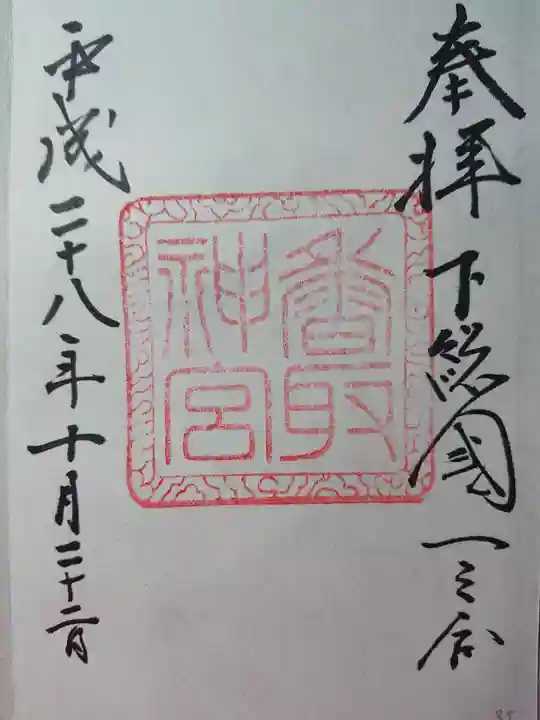 奉拝 下総國 一之宮
香取
神宮
平成二十八年十月二十二日